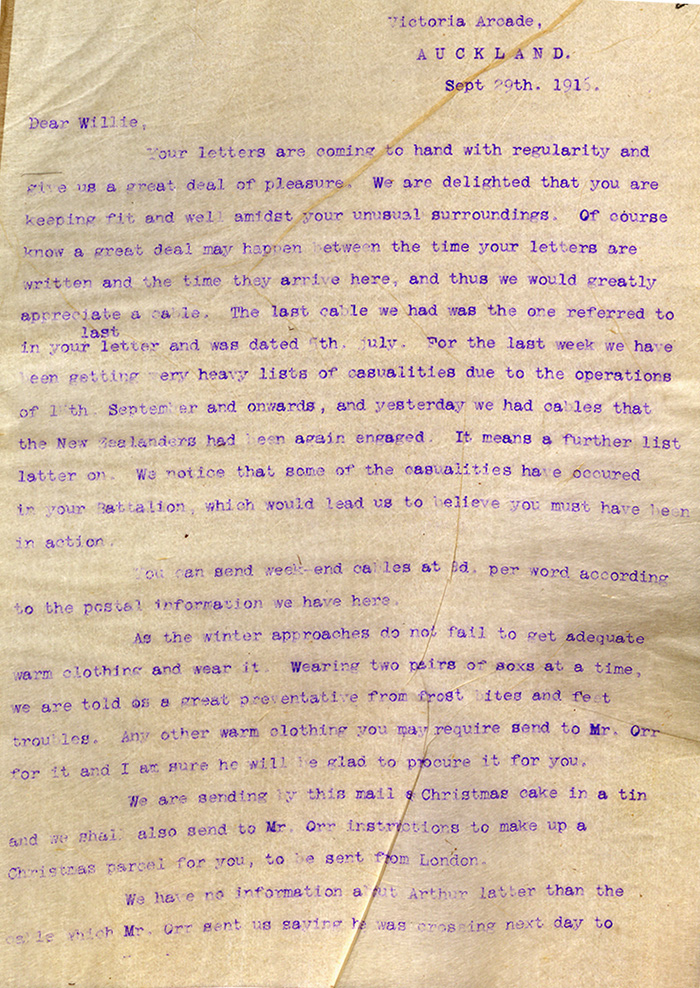 Victoria Arcade,
AUCKLAND.
Sept 29th. 1916.
Dear Willie,
Your letters are coming to hand with regularity and
give us a great deal of pleasure. We are delighted that you are
keeping fit and well amidst your unusual surroundings. Of course
know a great deal may happen between the time your letters are
written and the time they arrive here, and thus we would greatly
appreciate a cable. The last cable we had was the one referred to
last
in your letter and was dated July. For the last week we have
been getting very heavy lists of casualities due to the operations
of September and onwards, and yesterday we had cables that
the New Zealanders had been again engaged. It means a further list
latter on. We notice that some of the casualities have occured
in your Battalion, which would lead us to believe you must have been
in action.
You can send week-end cables at per word according
to the postal information we have here.
As the winter approaches do not fail to get adequate
warm clothing and wear it. Wearing two pairs of soxs at a time,
we are told os a great preventative from frost bites and feet
troubles. Any other warm clothing you may require send to Mr. Orr
for it and I am sure he will be glad to procure it for you.
We are sending by this mail a Christmas cake in a tin
and we shall also send to Mr. Orr instructions to make up a
Christmas parcel for you, to be sent from London.
We have no information about Arthur latter than the
cable which Mr. Orr sent us saying he was crossing next day to